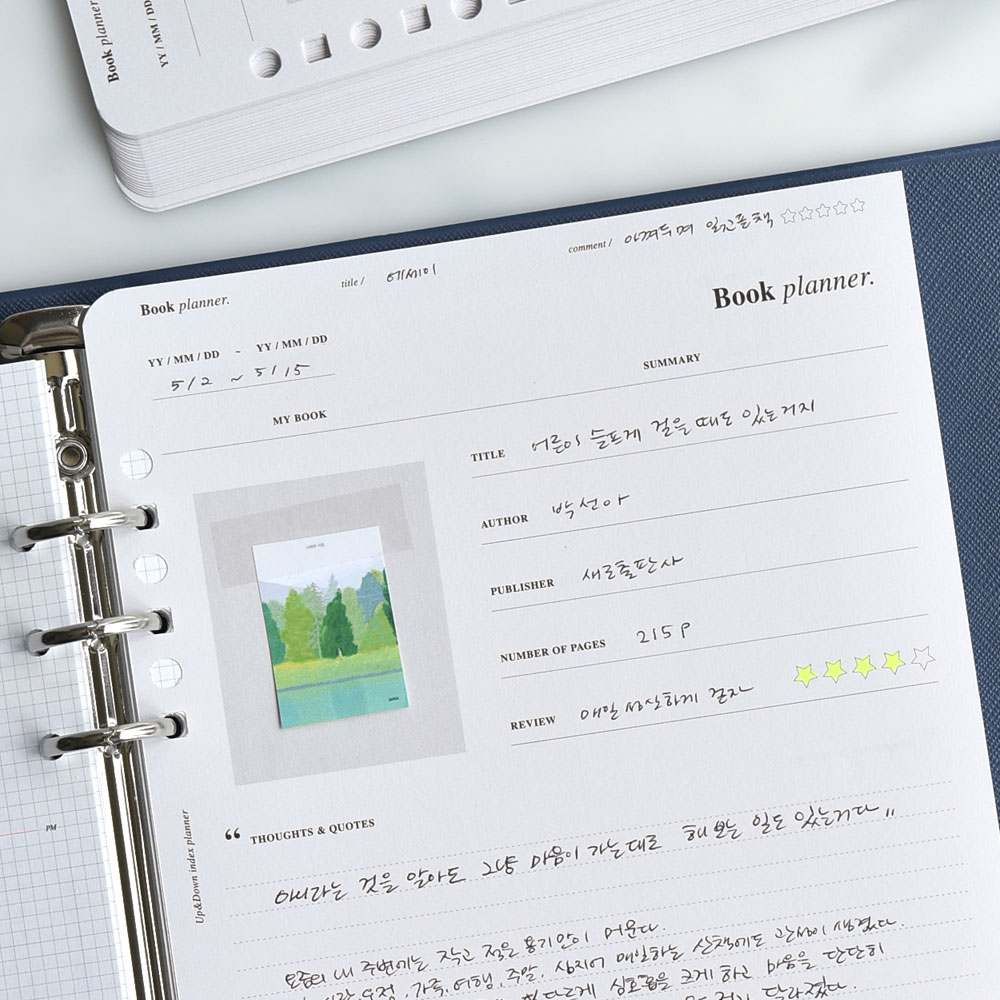 Book planner.
YY / MM / DD
comment / 아껴두며 읽고플책
title / 에세이
Book planner.
Book planner.
YY / MM / DD ~ YY / MM / DD
5/2 ~ 5/15
SUMMARY
MY BOOK
TITLE 어른이 슬프게 걸을 때도 있는거지
AUTHOR 박선아
PUBLISHER 새로출판사
NUMBER OF PAGES 215P
REVIEW 매일 성실하게 걷자
PM
Up&Down index planner
“ THOUGHTS & QUOTES
아니라는 것을 알아도 그냥 마음이 가는대로 해보는 일도 있는거다"
요즘의 내 주변에는 작고 적은 용기만이 머문다.
요정, 가족, 여행, 주말, 심지어 매일하는 산책에도 관심이 생겼다.
다르게 심호흡을 크게 하고 마음을 단단히
달라졌다.